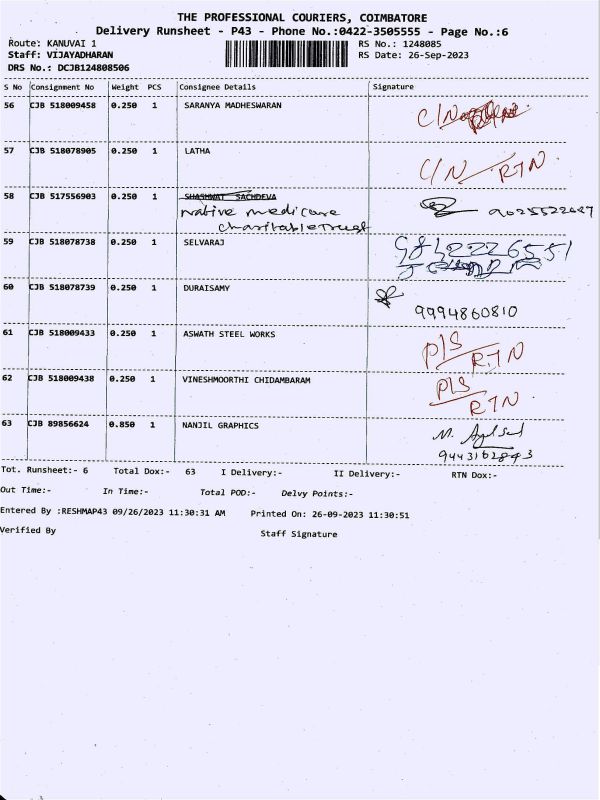 THE PROFESSIONAL COURIERS, COIMBATORE
Delivery Runsheet - P43 - Phone No.:0422-3505555 - Page No.:6
Route: KANUVAI 1 RS No.: 1248085
Staff: VIJAYADHARAN RS Date: 26-Sep-2023
DRS No.: DCJB124808506
S No Consignment No Weight PCS Consignee Details Signature
56 CJB 518009458 0.250 1 SARANYA MADHESWARAN C/N
57 CJB 518078905 0.250 1 LATHA C/N RTN
58 CJB 517556903 0.250 1 SHASHWAT SACHDEVA
native medicare 9025522687
charitable trust
59 CJB 518078738 0.250 1 SELVARAJ 9842226551
60 CJB 518078739 0.250 1 DURAISAMY
9994860810
61 CJB 518009433 0.250 1 ASWATH STEEL WORKS P/S
RTN
62 CJB 518009438 0.250 1 VINESHMOORTHI CHIDAMBARAM P/S
RTN
63 CJB 89856624 0.850 1 NANJIL GRAPHICS M.
9443162843
Tot. Runsheet:- 6 Total Dox:- 63 I Delivery:- II Delivery:- RTN Dox:-
Out Time:- In Time:- Total POD:- Delvy Points:-
Entered By :RESHMAP43 09/26/2023 11:30:31 AM Printed On: 26-09-2023 11:30:51
Verified By Staff Signature